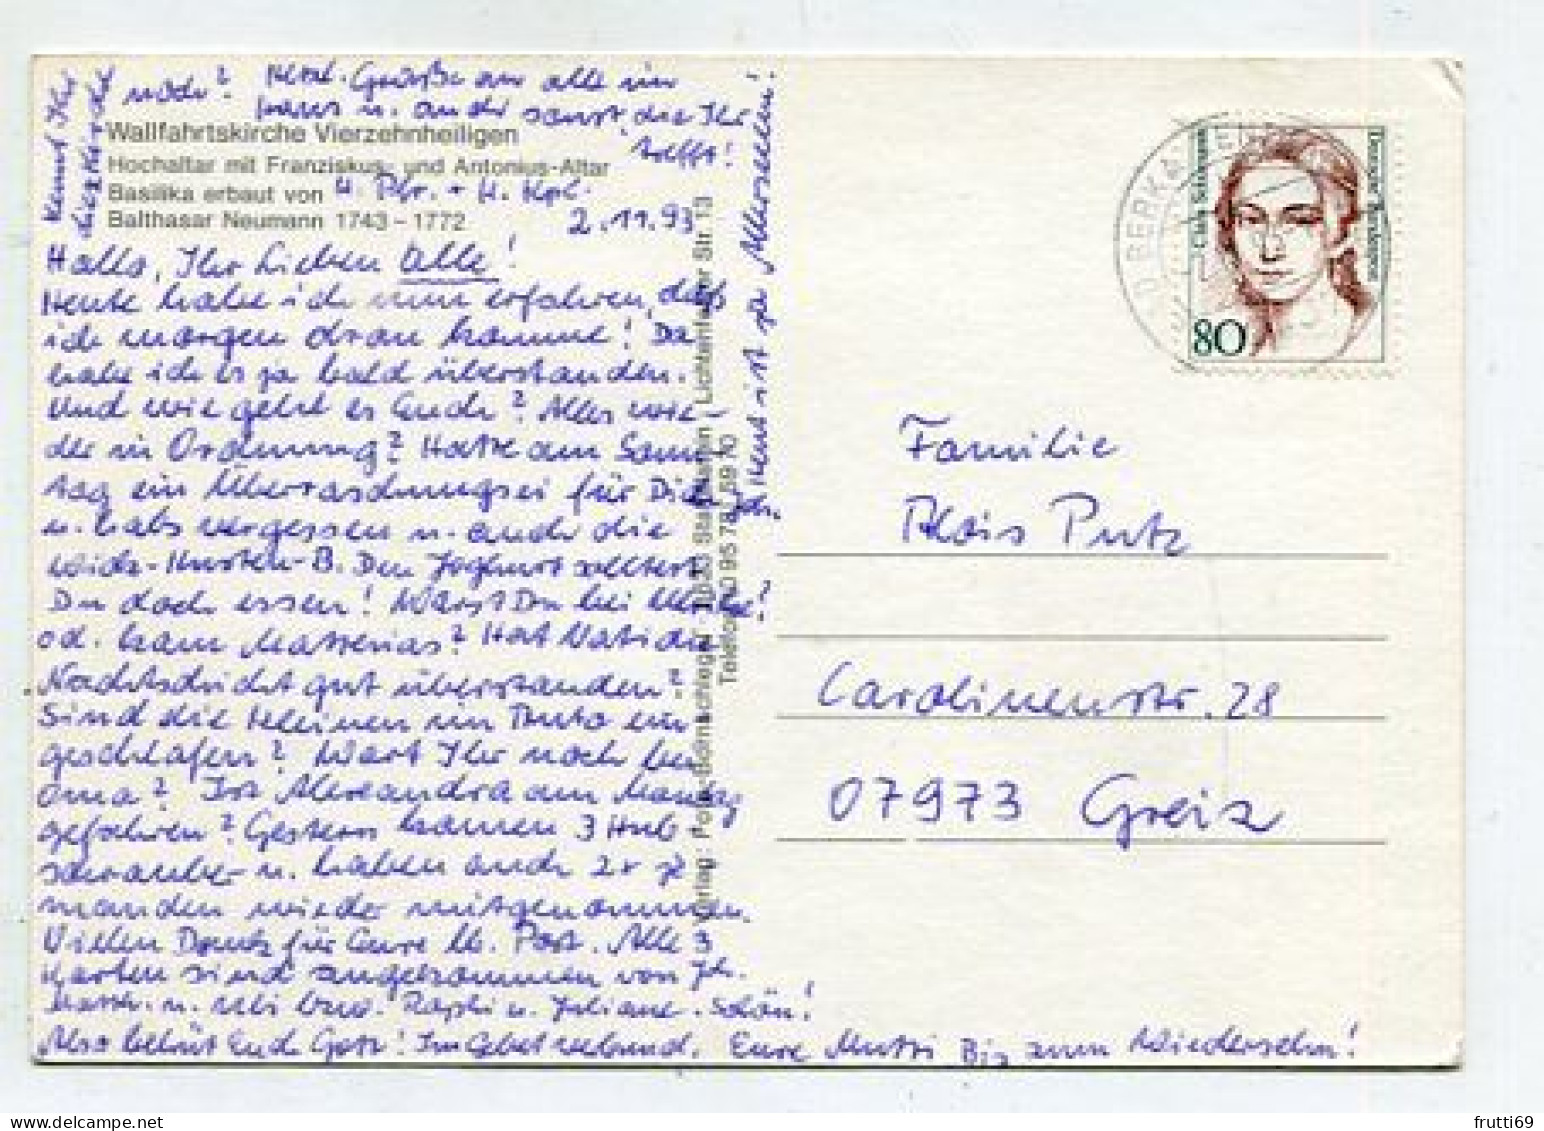 Kennt Ihr
diese Kirche
noch? Herzl. Grüße an alle im
Haus u. auch sonst, die Ihr
trefft!
Wallfahrtskirche Vierzehnheiligen
Hochaltar mit Franziskus- und Antonius-Altar
Basilika erbaut von
Balthasar Neumann 1743 – 1772
H. Pfr. + H. Kpl.
2.11.93
Hallo, Ihr Lieben alle!
Heute habe ich nun erfahren, daß
ich morgen dran komme! Da
habe ich es ja bald überstanden.
Und wie geht es Euch? Alles wie-
der in Ordnung? Hatte am Sonn
tag ein Überraschungsei für Dich
u. habs vergessen u. auch die
Husten-B. Den Joghurt solltest
Du doch essen! Warst Du bei
od. kam Matthias? Hat
Nachtschicht gut überstanden?
Sind die Kleinen im Auto ein
geschlafen? Wart Ihr noch bei
Oma? Ist Alexandra am Montag
gefahren? Gestern kamen 3 Hub-
schrauber u. haben auch 2x je
manden wieder mitgenommen.
Vielen Dank für Eure lb. Post. Alle 3
Karten sind angekommen von
u. Raphi u. Juliane. Schön!
Also behüt Euch Gott! Im Gebet verbund. Eure Mutti Bis zum Wiedersehn!
Heut ist ja Allerseelen!
Lichtenfelser Str. 13
Telefon
Deutsche Bundespost
Clara Schumann
80
Familie
Alois Putz
Carolinenstr. 28
07973 Greiz
frutti69